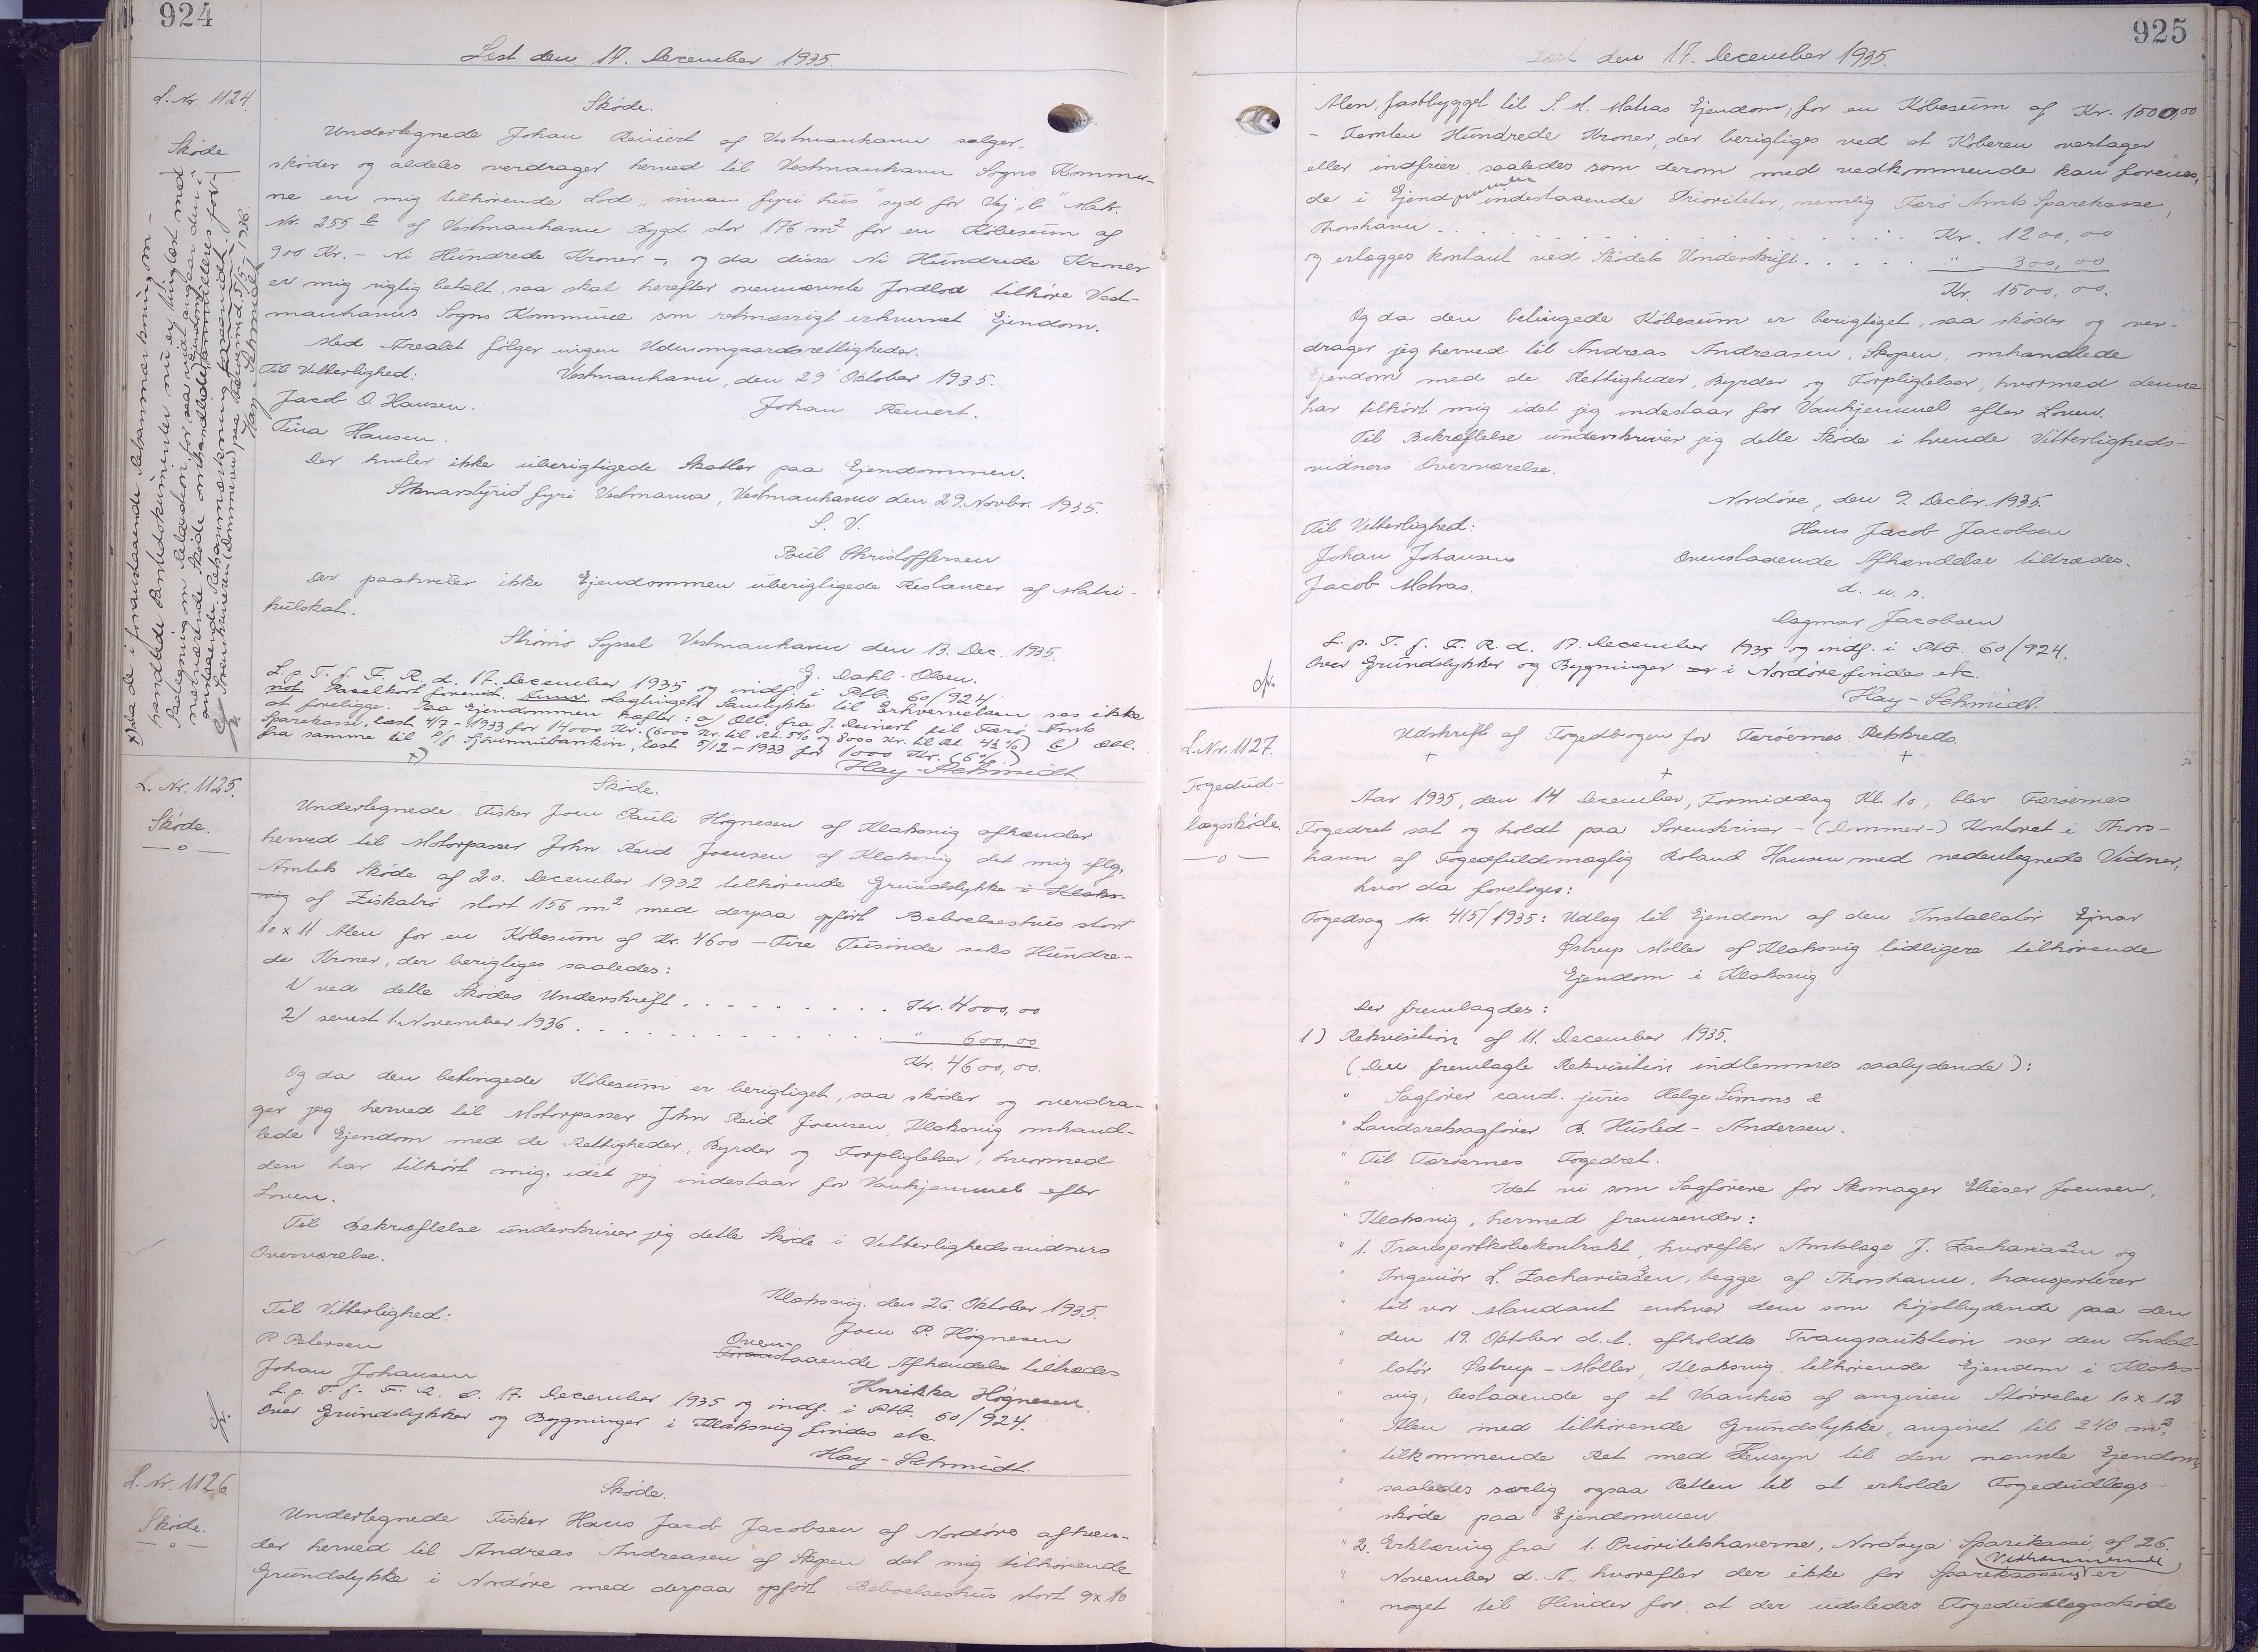 924
Læst den 17. December 1935.
L. Nr. 1124.
Skøde
Skøde.
Undertegnede Johan Reinert af Vestmanhavn sælger,
skøder og aldeles overdrager herved til Vestmanhavn Sogns Kommu-
ne en mig tilhørende Lod "innan fyri hús" syd for Vej "b" Matr.
Nr. 255 b af Vestmanhavn Bygd stor 176 m² for en Købesum af
900 Kr. - Ni Hundrede Kroner -, og da disse Ni Hundrede Kroner
er mig rigtig betalt, saa skal herefter ovennævnte Jordlod tilhøre Vest-
manhavns Sogns Kommune som retmæssigt erhvervet Ejendom.
Med Arealet følger ingen Udenomgaardsrettigheder.
Til Vitterlighed: Vestmanhavn, den 29' Oktober 1935.
Jacob O. Hansen. Johan Reinert.
Tina Hansen.
Der hviler ikke uberigtigede Skatter paa Ejendommen.
Soknarstýrið fyri Vestmanna, Vestmanhavn den 29. Novbr. 1935.
S. V.
Poul Christoffersen
Der paahviler ikke Ejendommen uberigtigede Restancer af Matri-
kulskat.
Strømø Syssel Vestmanhavn den 13. Dec. 1935.
G. Dahl-Olsen.
L. p. T. f. F. R. d. 17. December 1935 og indf. i Ptb. 60/924.
Parcelkort forevist. Lagtingets Samtykke til Erhvervelsen ses ikke
at foreligge. Paa Ejendommen hæfter: a) Obl. fra J. Reinert til Færø Amts
Sparekasse, læst 4/7-1933 for 14000 Kr. (6000 Kr. til Rt. 5% og 8000 Kr. til Rt. 4½ %) b) Obl.
fra samme til P/f Sjóvinnubankin, læst 5/12-1933 for 1000 Kr. (6%)
+)
Hay-Schmidt
+) Da de i foranstaaende Retsanmærkning om-
handlede Pantedokumenter nu er tinglæst med
Paategning om Relaxation for saa vidt angaar den i
nærværende Skøde omhandlede Ejendom annulleres for-
anstaaende Retsanmærkning saavidt.
Sorenskriveren (Dommeren) paa Færøerne d. 5/5 1936.
Hay-Schmidt
L. Nr. 1125.
Skøde.
Skøde.
Undertegnede Fisker Joen Pauli Høgnesen af Klaksvig afhænder
herved til Motorpasser John Reid Joensen af Klaksvig det mig iflg.
Amtets Skøde af 20. December 1932 tilhørende Grundstykke i Klaks-
vig af Ziskatrø stort 156 m² med derpaa opført Beboelseshus stort
10 x 11 Alen for en Købesum af Kr. 4600 - Fire Tusinde seks Hundre-
de Kroner, der berigtiges saaledes:
1/ ved dette Skødes Underskrift . . . . . . . . . Kr. 4000,00
2/ senest 1. November 1936 . . . . . . . . . . . " 600,00
Kr. 4600,00.
Og da den betingede Købesum er berigtiget, saa skøder og overdra-
ger jeg herved til Motorpasser John Reid Joensen, Klaksvig omhand-
lede Ejendom med de Rettigheder, Byrder og Forpligtelser, hvormed
den har tilhørt mig, idet jeg indestaar for Vanhjemmel efter
Loven.
Til Bekræftelse underskriver jeg dette Skøde i Vitterlighedsvidners
Overværelse.
Klaksvig, den 26. Oktober 1935.
Til Vitterlighed: Joen P. Høgnesen
P. Petersen Oven-
Foranstaaende Afhændelse tiltrædes
Johan Johansen Henrikka Høgnesen.
L. p. T. f. F. R. d. 17. December 1935 og indf. i Ptb. 60/924.
Over Grundstykker og Bygninger i Klaksvig findes etc.
Hay-Schmidt.
L. Nr. 1126.
Skøde.
Skøde.
Undertegnede Fisker Hans Jacob Jacobsen af Nordøre afhæn-
der herved til Andreas Andreasen af Skopen det mig tilhørende
Grundstykke i Nordøre med derpaa opført Beboelseshus stort 9 x 10
925
Læst den 17. December 1935.
Alen, fastbygget til S. M. Matras Ejendom, for en Købesum af Kr. 1500,00
- Femten Hundrede Kroner, der berigtiges ved at Køberen overtager
eller indfrier, saaledes som derom med vedkommende kan forenes,
de i Ejendommen indestaaende Prioriteter, nemlig Færø Amts Sparekasse,
Thorshavn . . . . . . . . . . . . . . Kr. 1200,00
og erlægges kontant ved Skødets Underskrift . . . . . " 300,00
Kr. 1500,00.
Og da den betingede Købesum er berigtiget, saa skøder og over-
drager jeg herved til Andreas Andreasen, Skopen, omhandlede
Ejendom med de Rettigheder, Byrder og Forpligtelser, hvormed denne
har tilhørt mig idet jeg indestaar for Vanhjemmel efter Loven.
Til Bekræftelse underskriver jeg dette Skøde i tvende Vitterligheds-
vidners Overværelse.
Nordøre, den 9. Decbr. 1935.
Til Vitterlighed: Hans Jacob Jacobsen
Johan Johansen Ovenstaaende Afhændelse tiltrædes.
Jacob Matras. d. u. s.
Dagmar Jacobsen
L. p. T. f. F. R. d. 17. December 1935 og indf. i Ptb. 60/924.
Over Grundstykker og Bygninger i Nordøre findes etc.
Hay-Schmidt.
L. Nr. 1127.
Fogedud-
lægsskøde.
Udskrift af Fogedbogen for Færøernes Retskreds
+ + +
Aar 1935, den 14. December, Formiddag Kl. 10, blev Færøernes
Fogedret sat og holdt paa Sorenskriver- (Dommer-) Kontoret i Thors-
havn af Fogedfuldmægtig Roland Hansen med nedentegnede Vidner,
hvor da foretoges:
Fogedsag Nr. 415/1935: Udlæg til Ejendom af den Installatør Ejnar
Østrup Møller af Klaksvig tidligere tilhørende
Ejendom i Klaksvig.
Der fremlagdes:
1) Rekvisition af 11. December 1935.
(Den fremlagte Rekvisition indlemmes saalydende):
" Sagfører cand. juris Helge Simons &
" Landsretssagfører B. Husted-Andersen.
" Til Færøernes Fogedret.
" Idet vi som Sagførere for Skomager Elieser Joensen,
" Klaksvig, hermed fremsender:
" 1. Transportkøbekontrakt, hvorefter Amtslæge J. Zachariasen og
" Ingeniør L. Zachariasen, begge af Thorshavn, transporterer
" til vor Mandant enhver dem som højstbydende paa den
" den 19. Oktober d. A. afholdte Tvangsauktion over den Instal-
" latør Østrup-Møller, Klaksvig, tilhørende Ejendom i Klaks-
" vig, bestaaende af et Vaanhus af angiven Størrelse 10 x 12
" Alen med tilhørende Grundstykke, angivet til 240 m²,
" tilkommende Ret med Hensyn til den nævnte Ejendom,
" saaledes særlig ogsaa Retten til at erholde Fogedudlægs-
" skøde paa Ejendommen.
" 2. Erklæring fra 1. Prioritetshaverne, Norðoya Sparikassi, af 26.
" November d. A., hvorefter der ikke for Sparekassens Vedkommende er
" noget til Hinder for, at der udstedes Fogedudlægsskøde